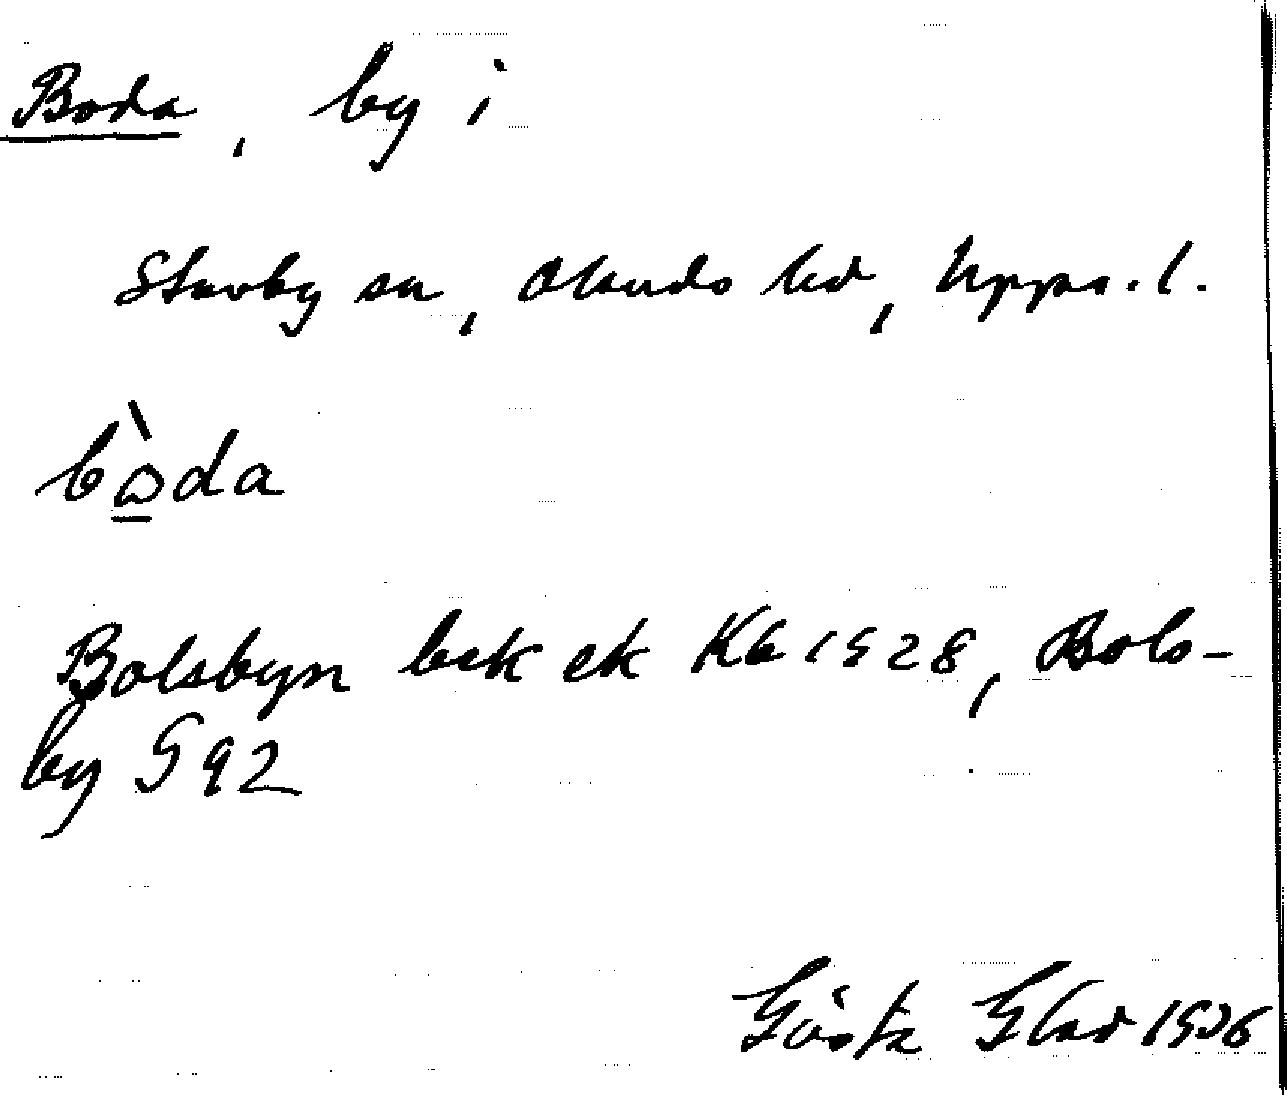 Boda, by i
Stavby sn, Olands hd, Upps. l.
bò̲da
Bolsbyn bek ek Kb 1528, Bols-
by G 92
Gösta Glad 1936